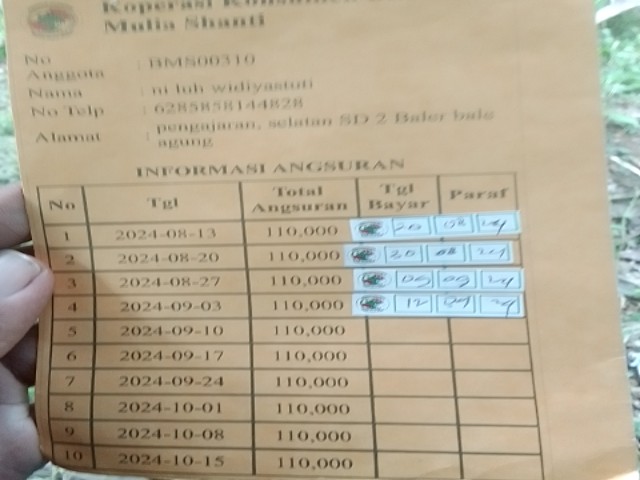 Koperasi Konsumen
Mulia Shanti
No Anggota : BMS00310
Nama : ni luh widiyastuti
No Telp : 6285858144828
Alamat : pengajaran, selatan SD 2 Baler bale agung
INFORMASI ANGSURAN
No Tgl Total Angsuran Tgl Bayar Paraf
1 2024-08-13 110,000 20 08 24
2 2024-08-20 110,000 30 08 24
3 2024-08-27 110,000 09 24
4 2024-09-03 110,000 12 09 24
5 2024-09-10 110,000
6 2024-09-17 110,000
7 2024-09-24 110,000
8 2024-10-01 110,000
9 2024-10-08 110,000
10 2024-10-15 110,000